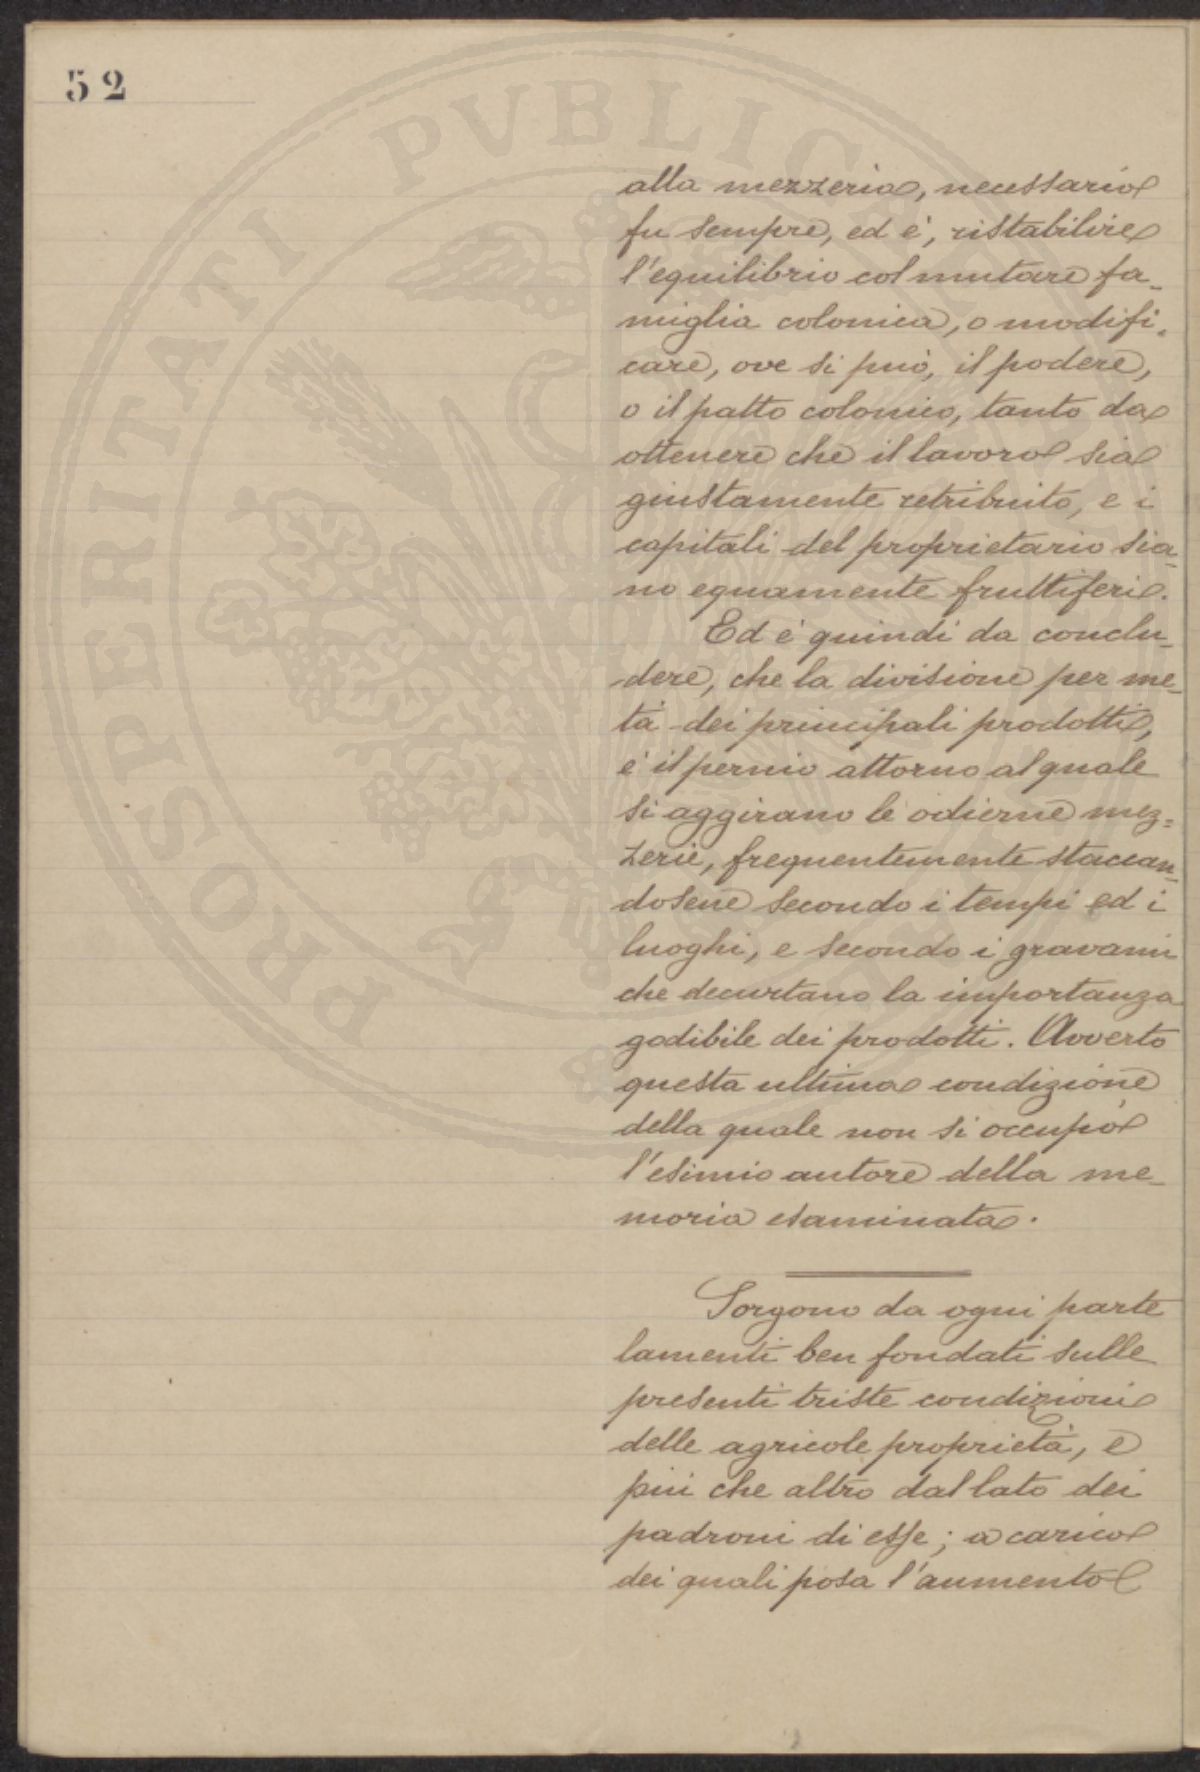 52
PROSPERITATI PUBLICAE
alla mezzeria, necessario
fu sempre, ed è, ristabilire
l'equilibrio col mutare fa-
miglia colonica, o modifi-
care, ove si può, il podere,
o il patto colonico, tanto da
ottenere che il lavoro sia
giustamente retribuito, e i
capitali del proprietario sia-
no equamente fruttiferi.
Ed è quindi da conclu-
dere, che la divisione per me-
tà dei principali prodotti,
è il pernio attorno al quale
si aggirano le odierne mez=
zerie, frequentemente staccan-
dosene secondo i tempi ed i
luoghi, e secondo i gravami
che decurtano la importanza
godibile dei prodotti. Avverto
questa ultima condizione
della quale non si occupò
l'esimio autore della me-
moria esaminata.
Sorgono da ogni parte
lamenti ben fondati sulle
presenti triste condizioni
delle agricole proprietà, e
più che altro dal lato dei
padroni di esse; a carico
dei quali posa l'aumento